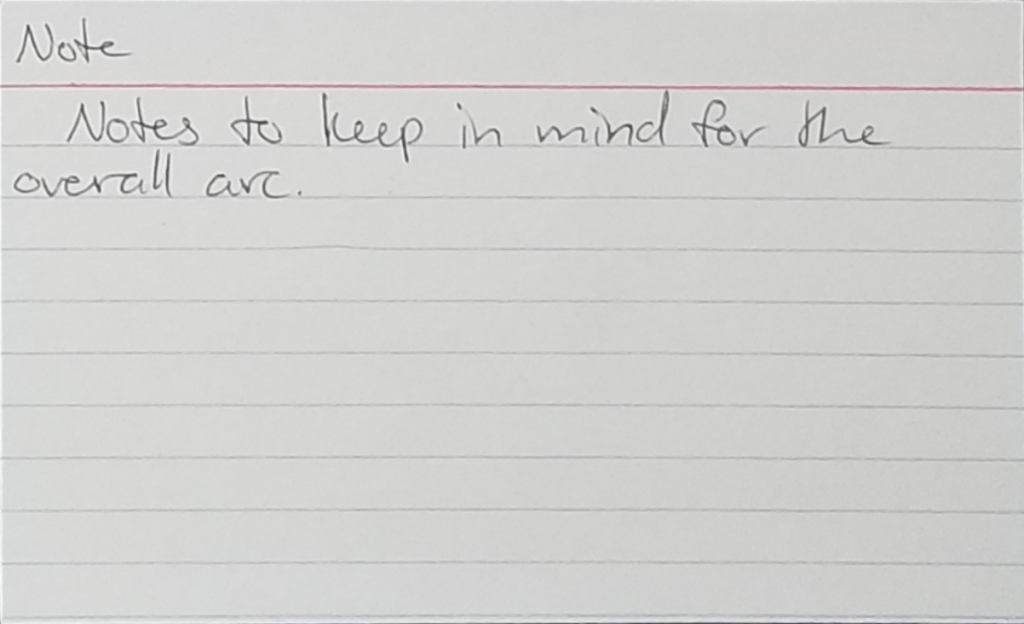 Note
Notes to keep in mind for the
overall arc.